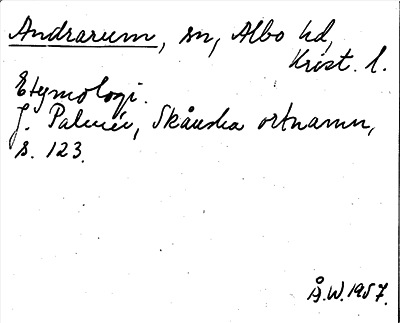 Andrarum, sn, Albo hd,
Krist. l.
Etymologi.
J. Palmér, Skånska ortnamn,
s. 123.
Å.W. 1957.